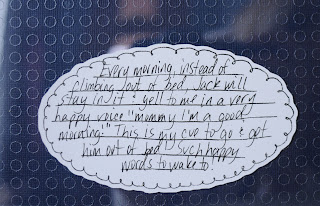 Every morning, instead of
climbing out of bed, Jack will
stay in it & yell to me in a very
happy voice "mommy I'm a good
morning!" This is my cue to go & get
him out of bed. Such happy
words to wake to!